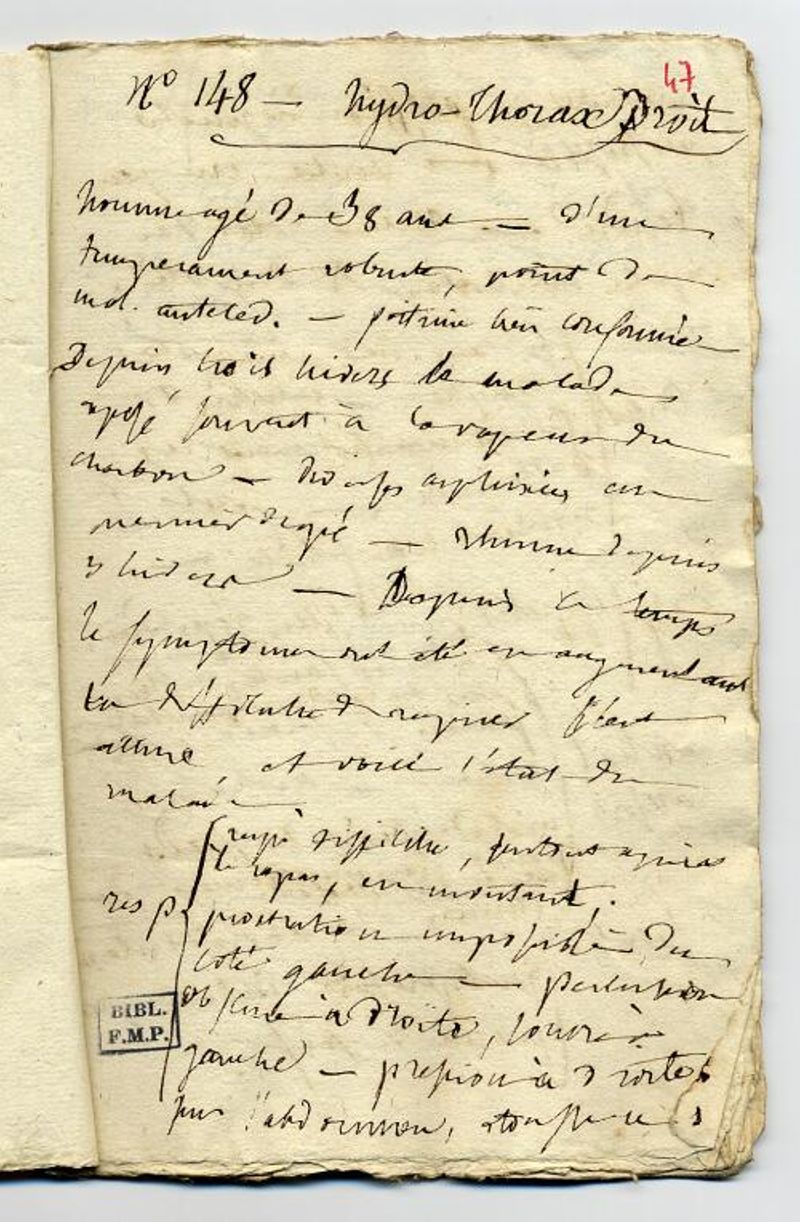 47
N° 148 — hydro-Thorax Droit
homme agé de 38 ans — d'un
temperament robuste, point de
mal. anteced. — poitrine bien conformée
Depuis trois hivers le malade
exposé souvent à la vapeur du
charbon — diverses asphixies au
premier degré — rhume depuis
3 hivers — Depuis ce temps
le symptomes ont été en augmentant
la difficulté de respirer s'est
accrue, et voici l'état du
malade
resp difficile, surtout après
le repas, en montant.
resp
prostration impossible du
coté gauche — percussion
obscure à droite, sonore à
gauche — pression à droite
sur l'abdomen, etouffe
BIBL.
F.M.P.